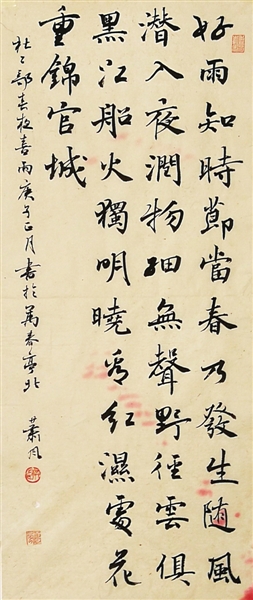 好雨知時節當春乃發生随風
潛入夜潤物細無聲野徑雲俱
黑江船火獨明曉看紅濕處花
重錦官城
杜工部春夜喜雨庚子正月書於萬春亭北 蕭风